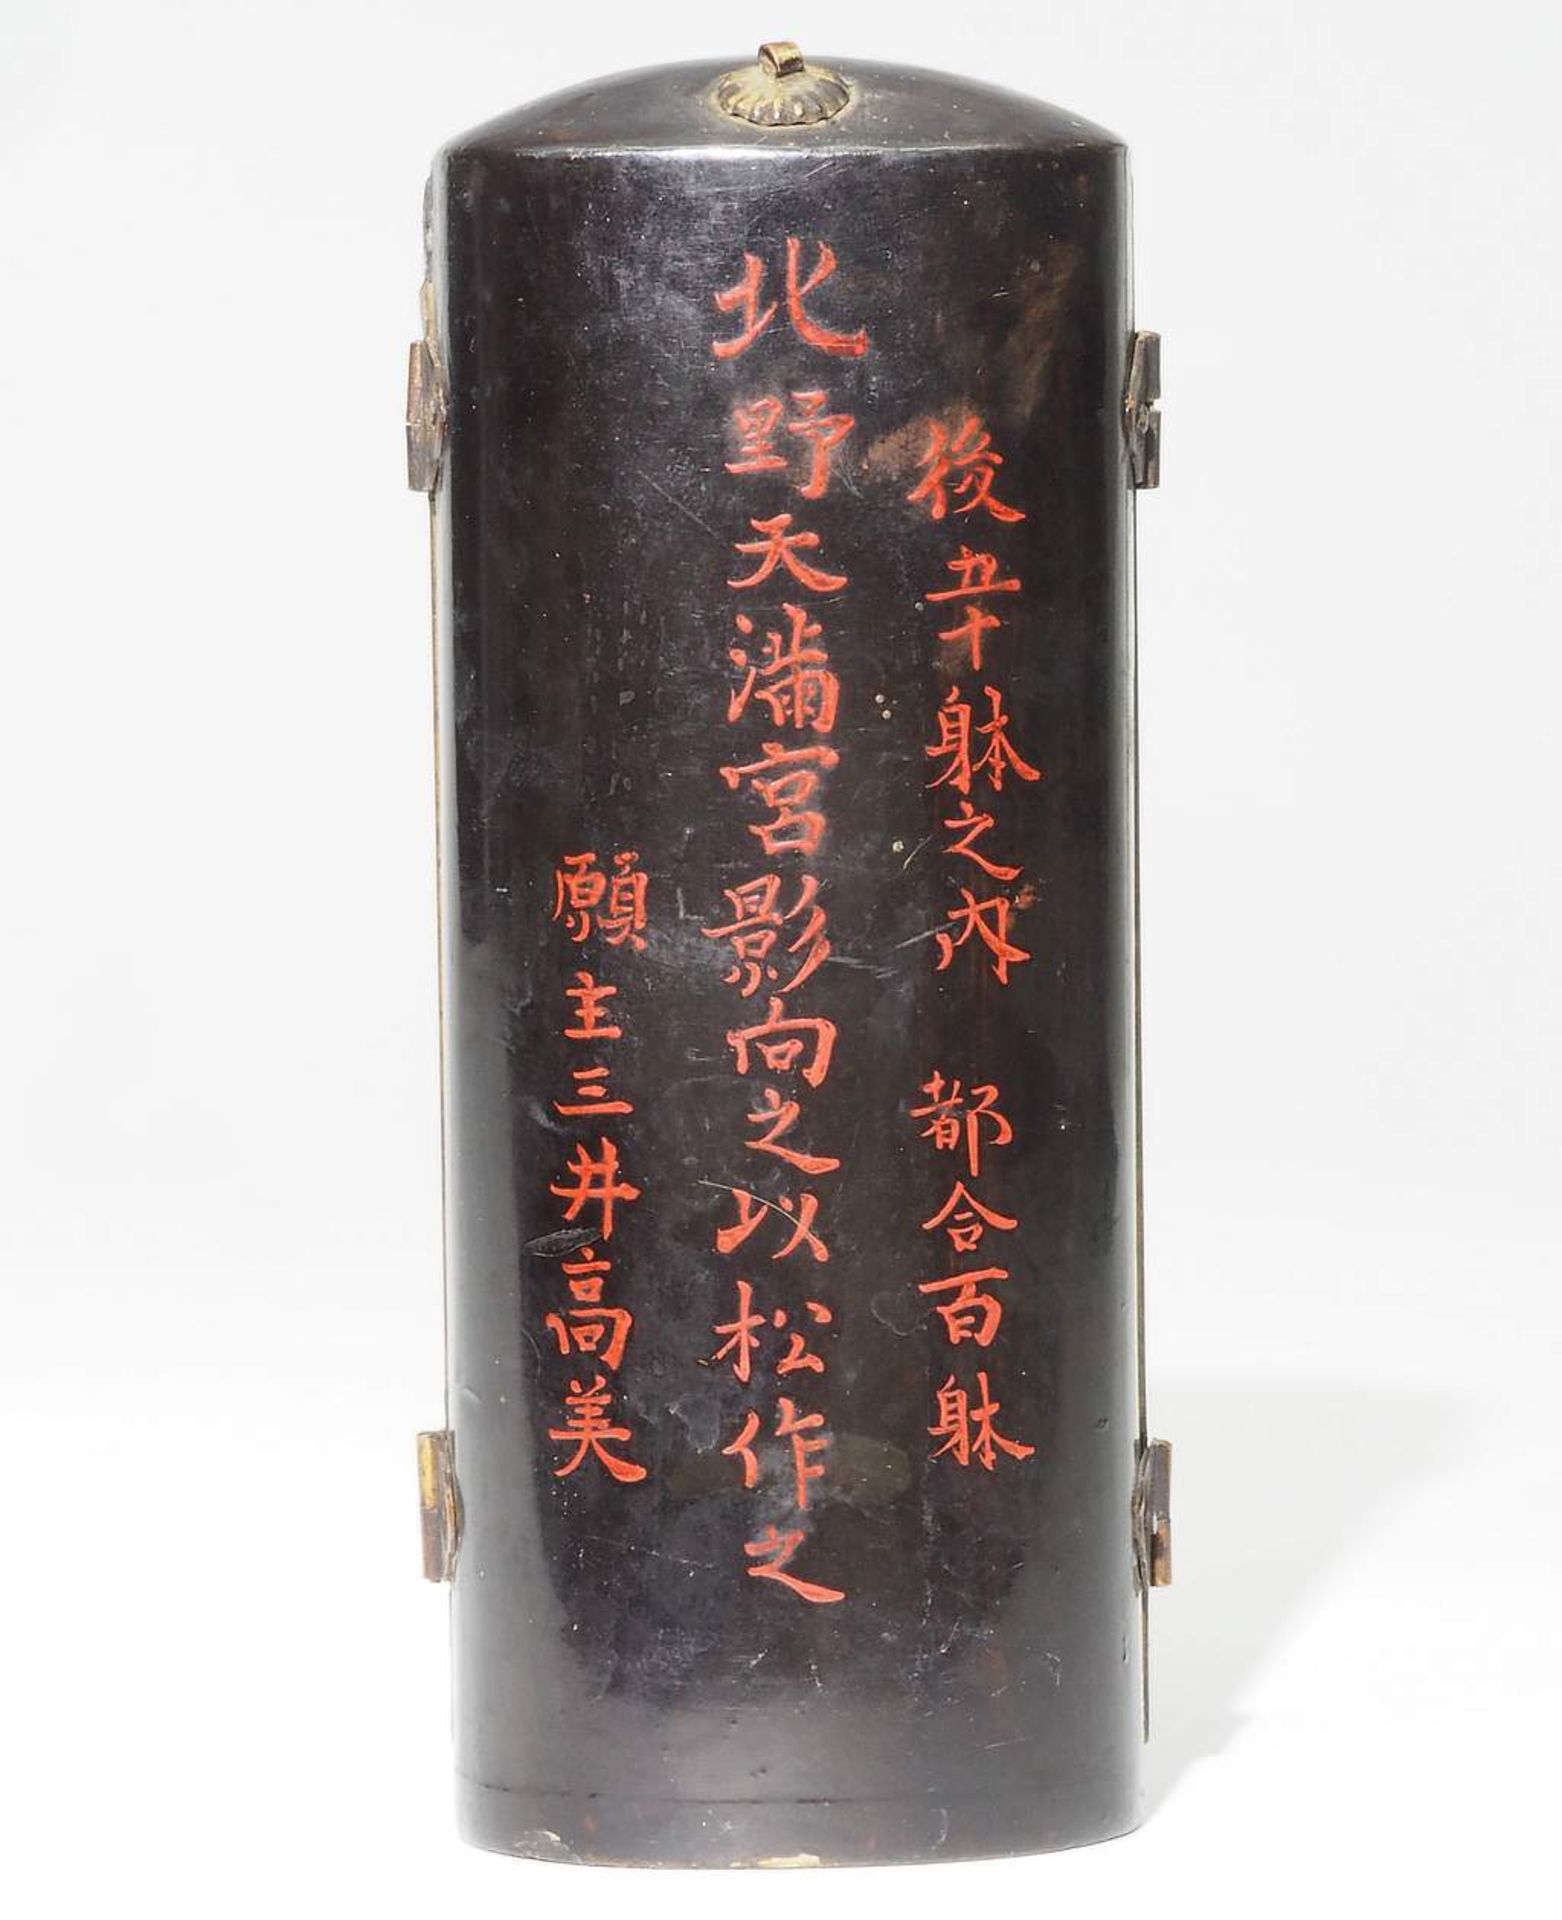 後五十躰之内　都合百躰
北野天満宮影向之以松作之
願主三井高美